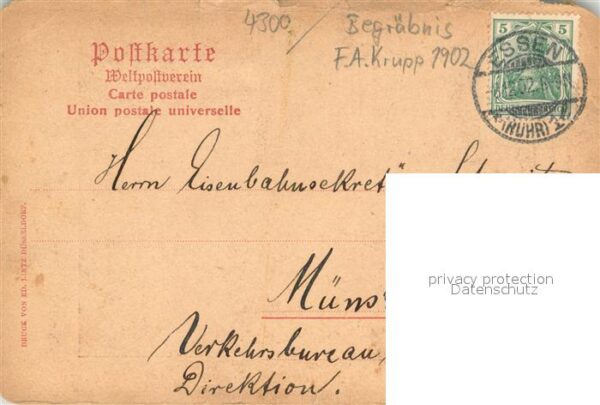 4300
Begräbnis
F.A. Krupp 1902
5 5
ESSEN
(RUHR)
Postkarte
Weltpostverein
Carte postale
Union postale universelle
Herrn Eisenbahnsekret
Müns
Verkehrsbureau,
Direktion.
DRUCK VON ED. LIETZ DÜSSELDORF.
privacy protection
Datenschutz